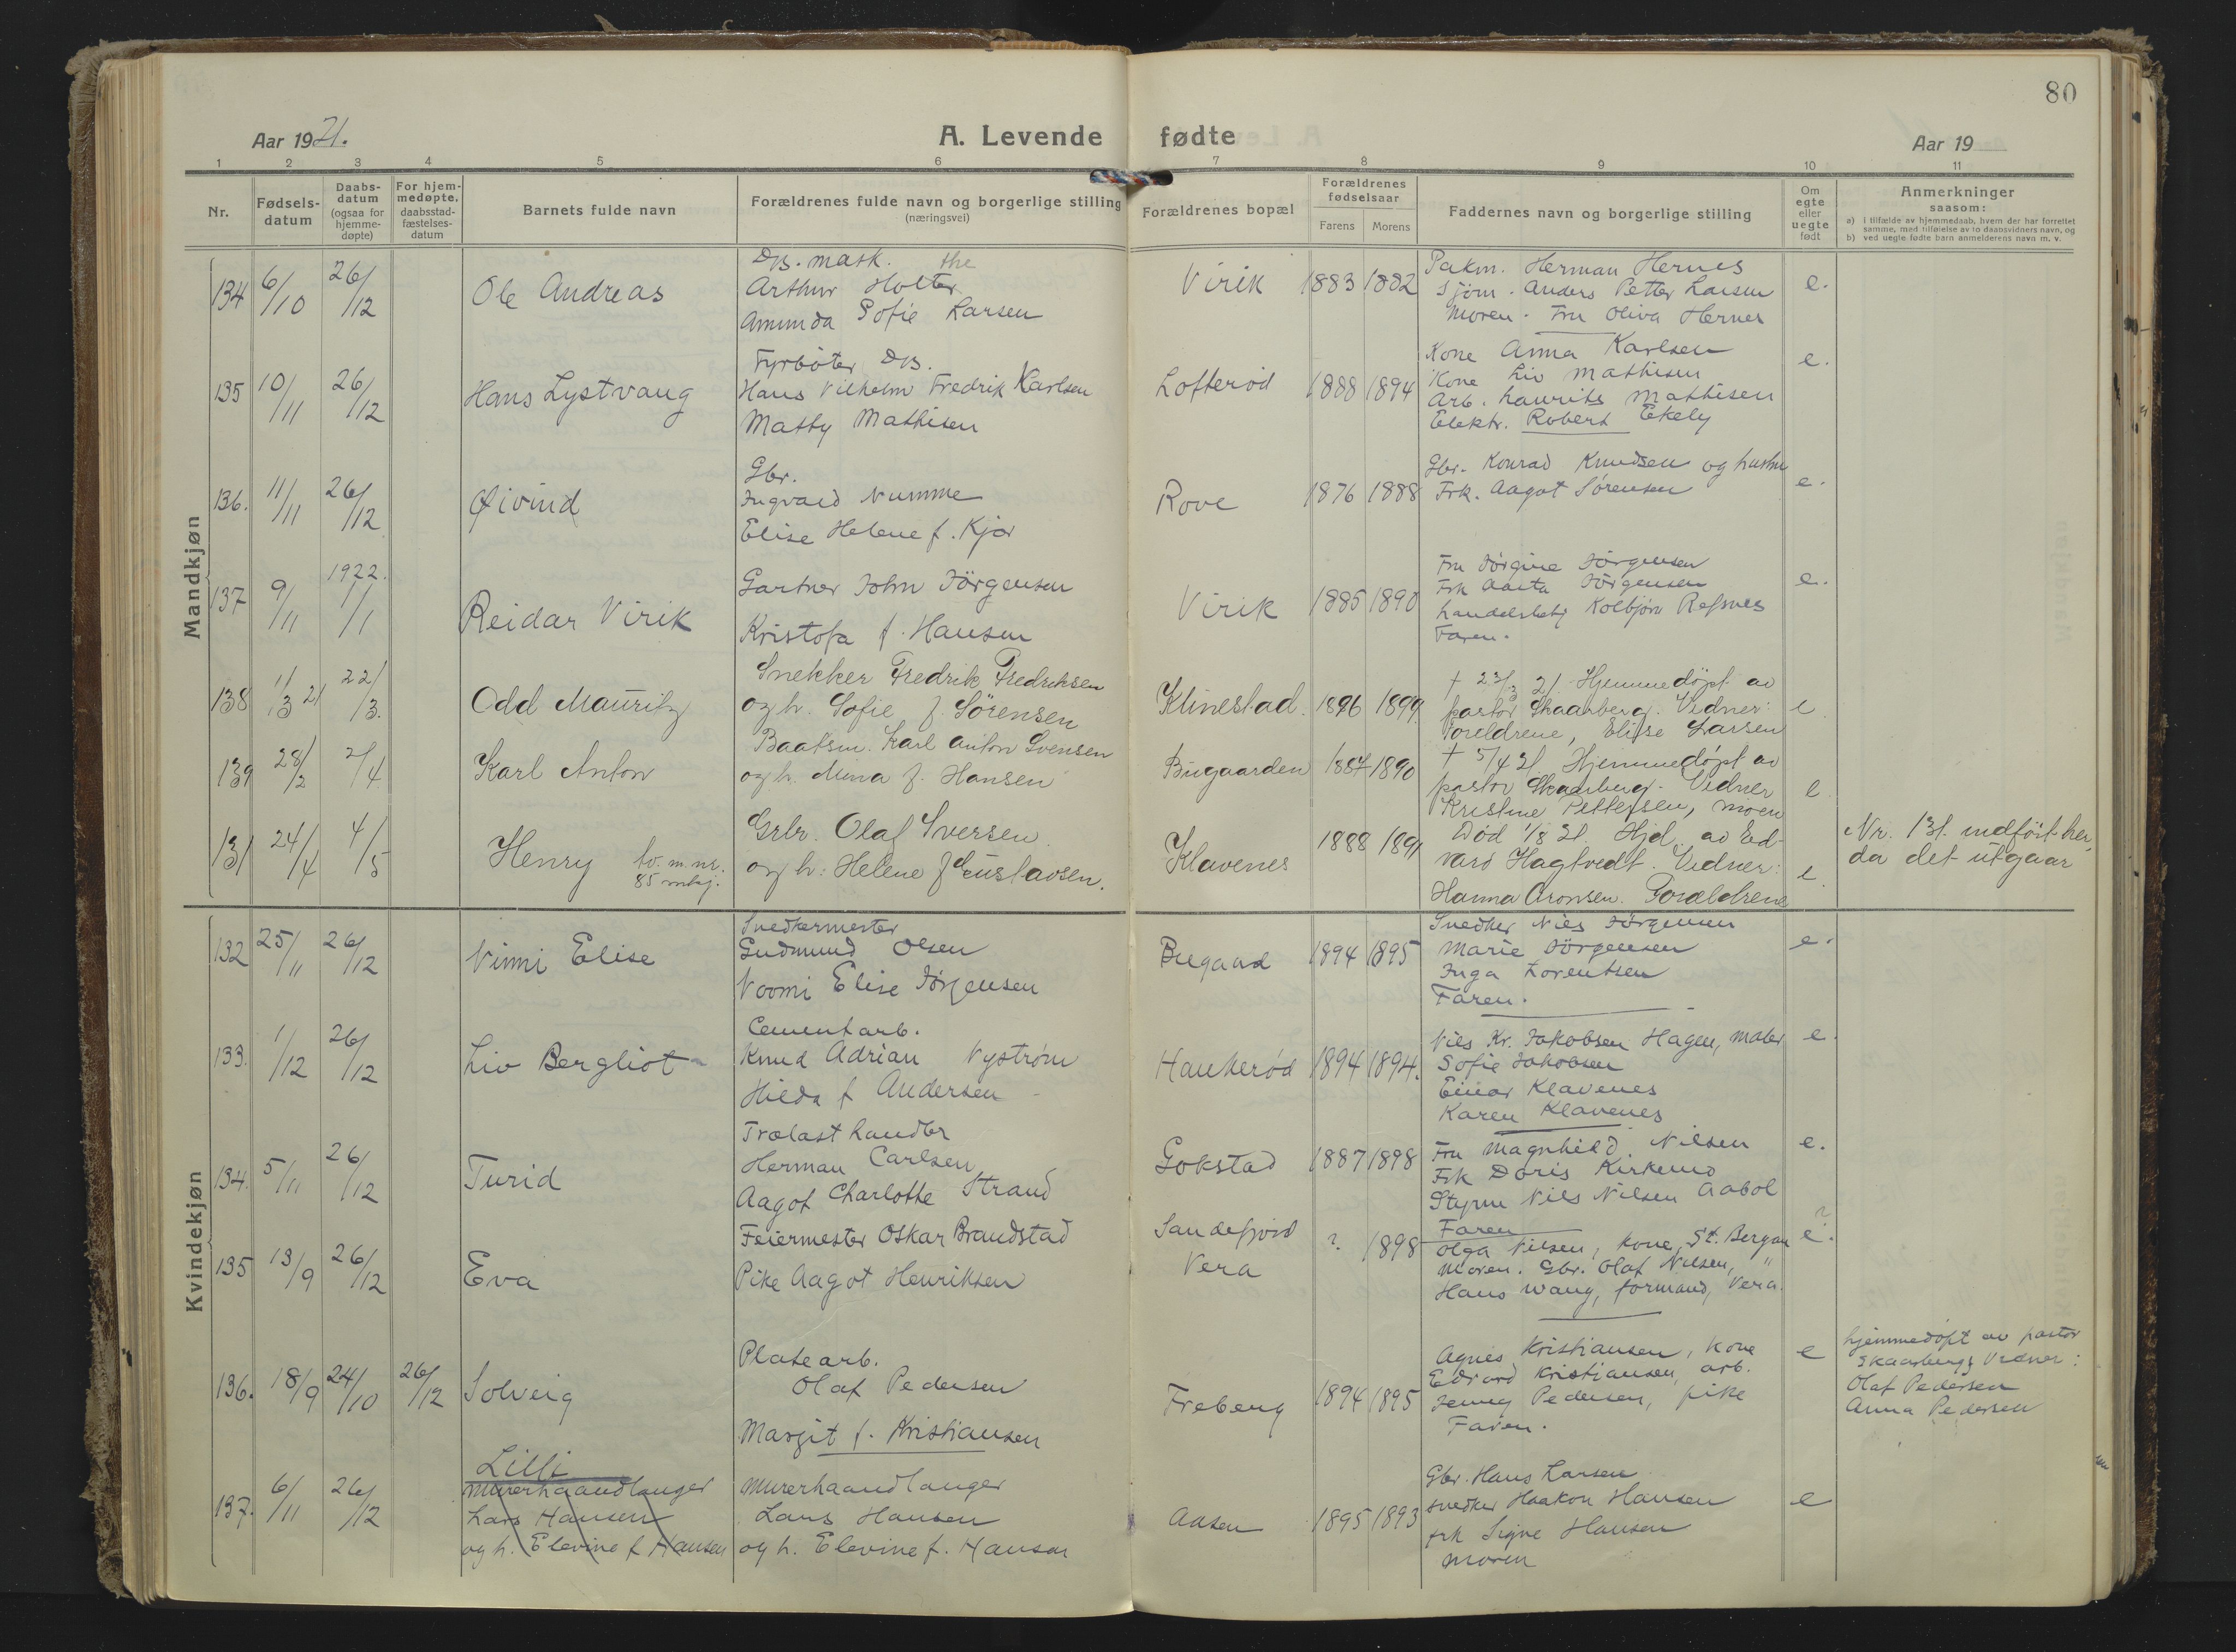 80
Aar 1921.
A. Levende fødte
Aar 19
1 2 3 4 5 6 7 8 9 10 11
Nr.
Fødsels-
datum
Daabs-
datum
(ogsaa for
hjemme-
døpte)
For hjem-
medøpte.
daabsstad-
fæstelses-
datum
Barnets fulde navn
Forældrenes fulde navn og borgerlige stilling
(næringsvei)
Forældrenes bopæl
Forældrenes
fødselsaar
Farens Morens
Faddernes navn og borgerlige stilling
Om
egte
eller
uegte
født
Anmerkninger
saasom:
a) i tilfælde av hjemmedaab, hvem der har forrettet
samme, med tilføielse av to daabsvidners navn, og
b) ved uegte fødte barn anmelderens navn m. v.
Mandkjøn
134 6/10 26/12 Ole Andreas
Arthur Holter
Amunda Sofie Larsen
Virik 1883 1882
Pakm. Herman Hernes
Sjøm. Anders Petter Larsen
Moren. Fru Oliva Hernes
e.
135 10/11 26/12 Hans Lystvang
Fyrbøter DS.
Hans Vilhelm Fredrik Karlsen
Matty Mathisen
Lofterød 1888 1894
Kone Anna Karlsen
Kone Liv Mathisen
Arb. Laurits Mathisen
Elektr. Robert Ekely
e.
136. 11/11 26/12 Øivind
Gbr.
Ingvald Numme
Elise Helene f. Kjær
Rove 1876 1888
Gbr. Konrad Knudsen og hustru
Frk. Aagot Sørensen
e.
137 9/11 1922. 1/1 Reidar Virik
Gartner John Jörgensen
Kristofa f. Hansen
Virik 1885 1890
Fru Jørgine Jørgensen
Frk Jørgensen
Kolbjørn Refsnes
Faren.
e.
138 1/3 21 22/3. Odd Mauritz
Snekker Fredrik Fredriksen
og h. Sofie f. Sörensen
Klinestad. 1896 1899
† 23/3 21. Hjemmedøpt av
pastor Skaarberg. Vidner:
Foreldrene, Elise Larsen
e
139 28/2 2/4. Karl Anton
Baatsm. Karl Anton Svensen
og h. Mina f. Hansen
Bugaarden 1887 1890
† 5/4 21. Hjemmedøpt av
pastor Skaarberg. Vidner
Kristine Pettersen, moen
e
131 24/4 4/5 Henry tv. m. nr.
85 mkj.
Grbr. Olaf Iversen
og h: Helene f Gustavsen.
Klavenes 1888 1891
Død 1/8 21. Hjd. av Ed-
vard Hagtvedt. Vidner:
Hanna Aronsen. Forældrene
e
Nr. 131. indført her,
da det utgaar
Kvindekjøn
132 25/11 26/12 Vinni Elise
Snedkermester
Gudmund Olsen
Noomi Elise Jörgensen
Bugaard 1894 1895
Snedker Nils Jørgensen
Marie Jörgensen
Inga Lorentsen
Faren.
e.
133. 1/12 26/12 Liv Bergliot
Cementarb.
Knud Adrian Nystrøm
Hilda f Andersen
Haukerød 1894 1894.
Nils Kr. Jakobsen Hagen, maler
Sofie Jakobsen
Einar Klavenes
Karen Klavenes
e.
134. 5/11 26/12 Turid
Trælasthandler
Herman Carlsen
Aagot Charlotte Strand
Gokstad 1887 1898
Fru Magnhild Nilsen
Frk Doris Kirkemo
Styrm Nils Nilsen Aabol
Faren
e.
135 13/9 26/12 Eva
Feiermester Oskar Brandstad
Pike Aagot Henriksen
Sandefjord
Vera
? 1898
Olga Nilsen, kone, St. Bergan
Moren. Gbr. Olaf Nilsen, "
Hans Wang, formand, Vera.
?
e.
136. 18/9 24/10 26/12 Solveig
Platearb.
Olaf Pedersen
Margit f. Kristiansen
Freberg 1894 1895
Agnes Kristiansen, kone
Edvard Kristiansen, arb.
Jenny Pedersen, pike
Faren.
e
hjemmedøpt av pastor
Skaarberg, Vidner:
Olaf Pedersen
Anna Pedersen
137. 6/11 26/12 Lilli
Murerhaandlanger
Lars Hansen
og h. Elevine f Hansen
Murerhaandlanger
Lars Hansen
og h. Elevine f. Hansen
Aasen 1895 1893
Gbr. Hans Larsen
Snedker Haakon Hansen
frk Signe Hansen
moren
e